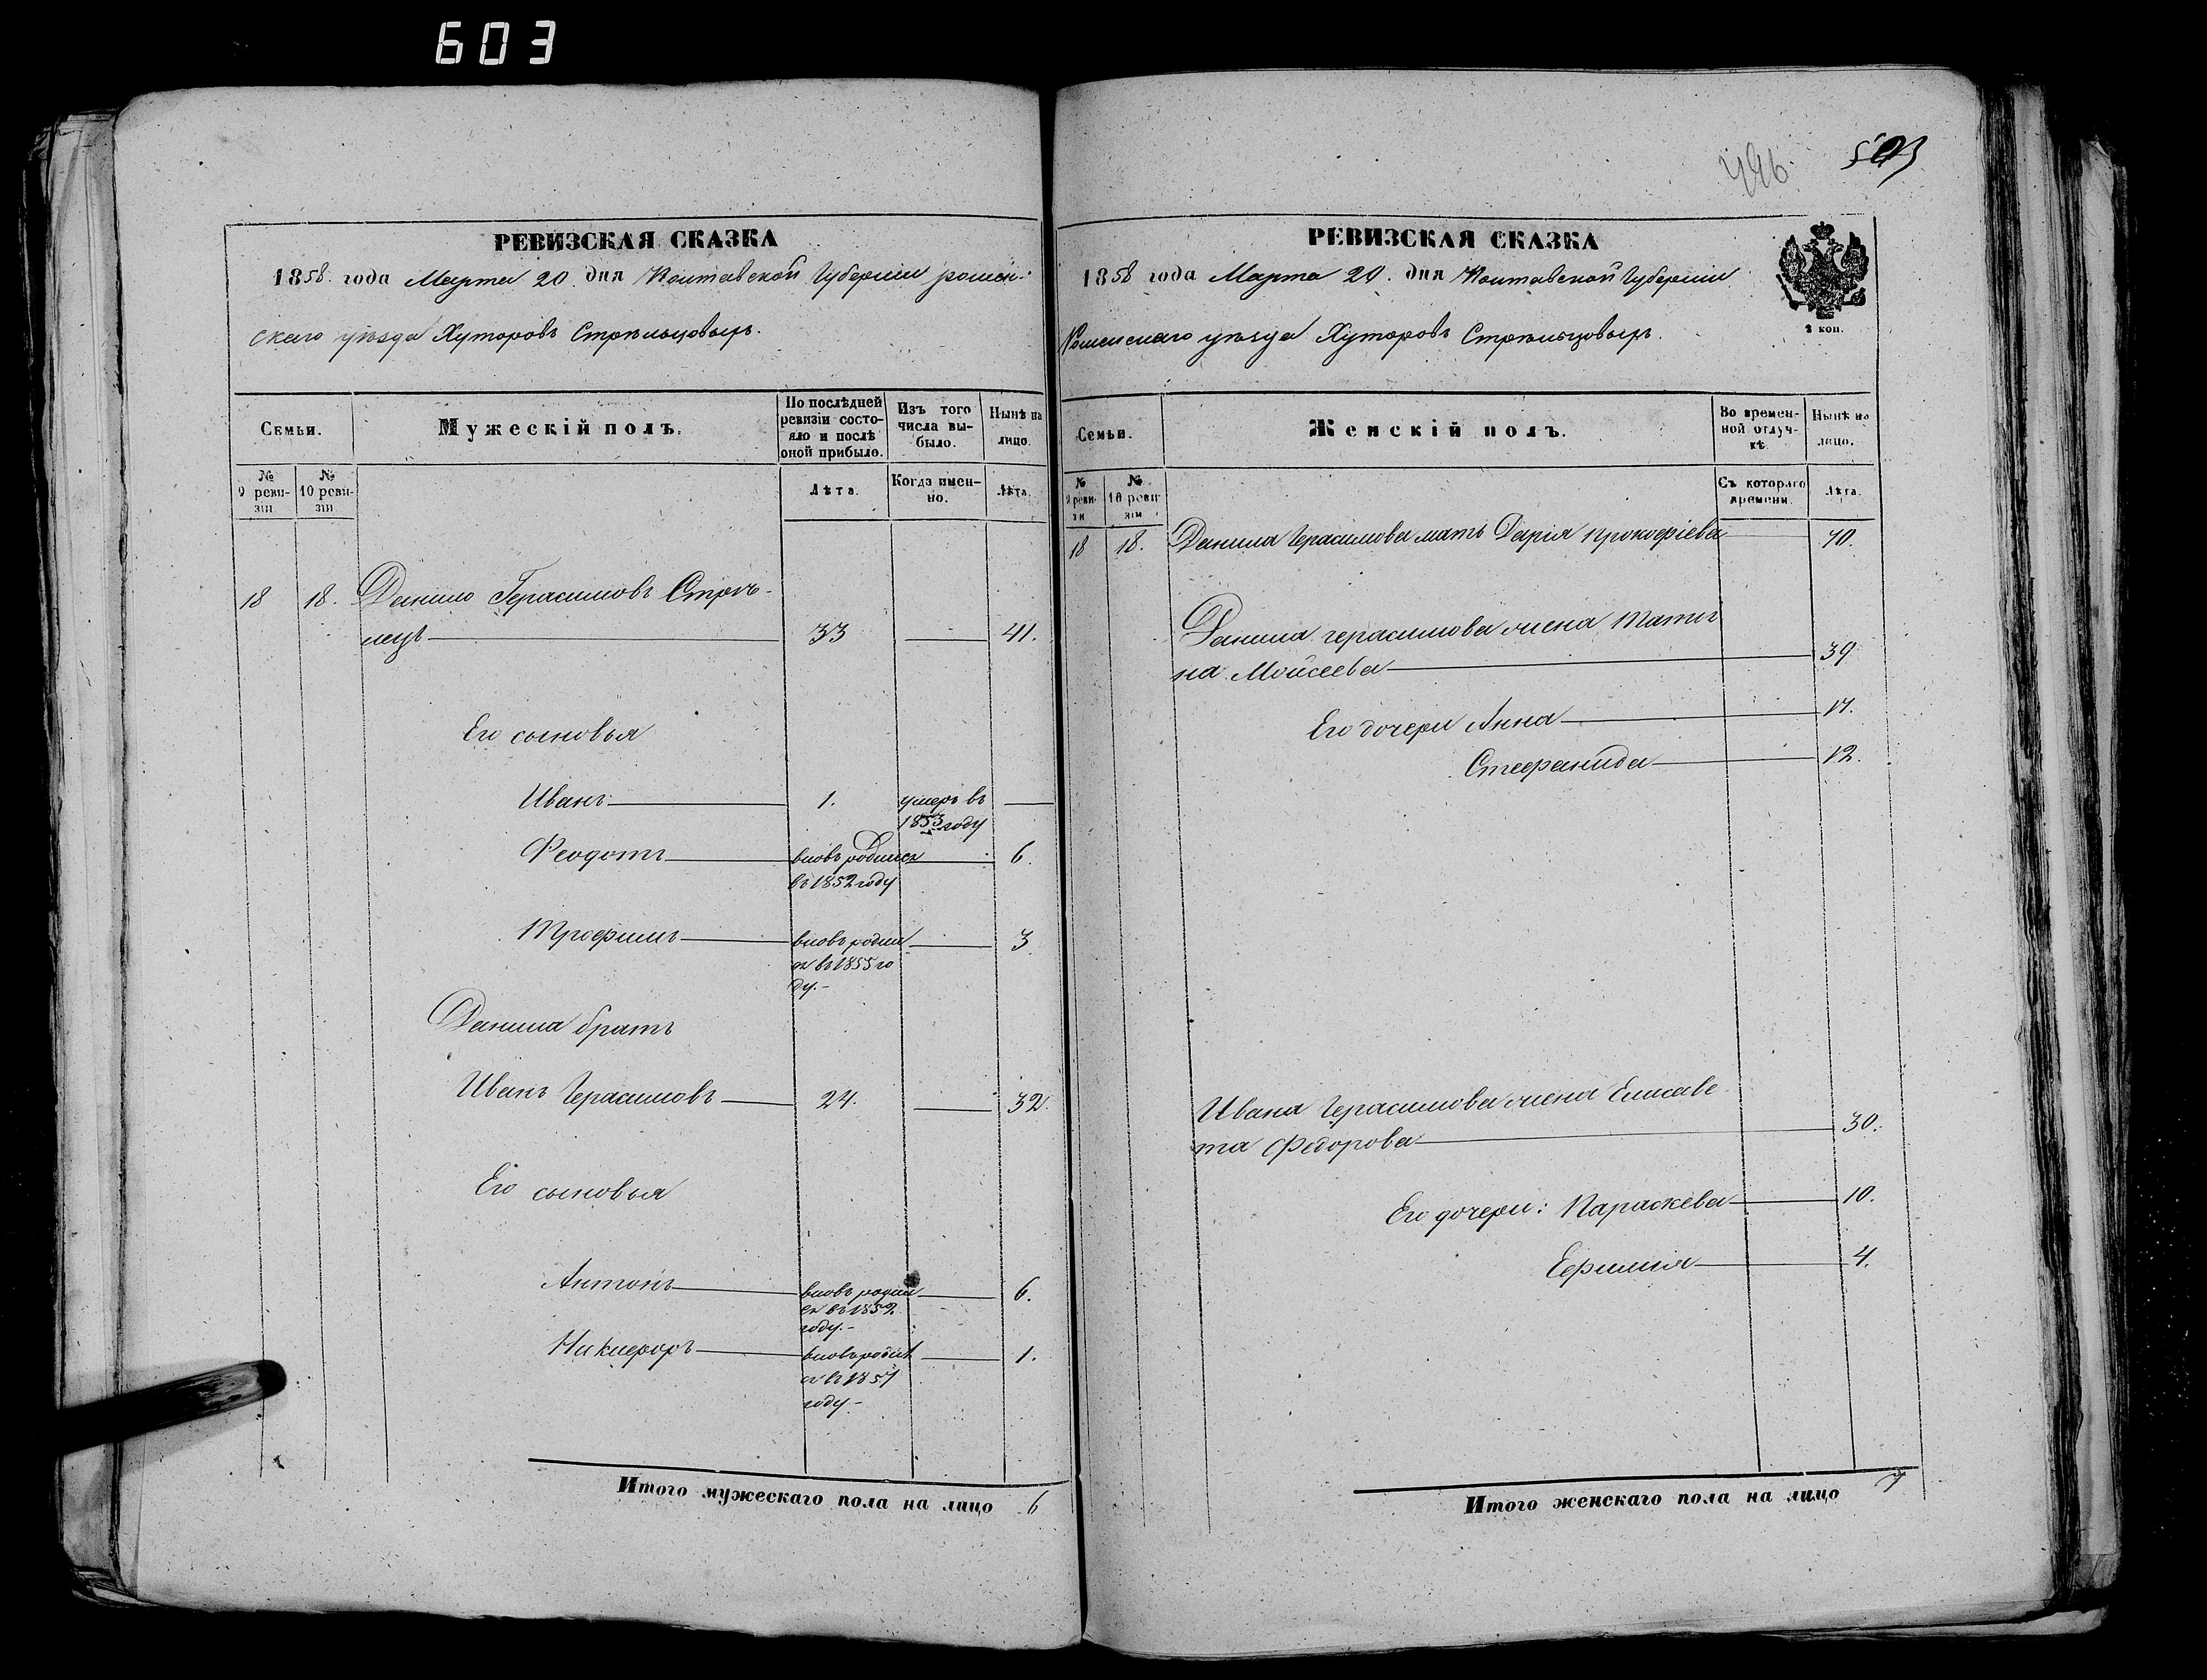 603
РЕВИЗСКАЯ СКАЗКА
1858 года Марта 20 дня Полтавской Губернии ромен-
скаго уѣзда Хуторовъ Стрѣльцовыхъ.
Семьи.
Мужескій полъ.
По послѣдней ревизіи состояло и послѣ оной прибыло.
Изъ того числа выбыло.
Нынѣ на лицо.
№ 9 ревизіи
№ 10 ревизіи
Лѣта.
Когда именно.
Лѣта.
18 18. Данило Герасимовъ Стрѣ-
лецъ 33 41.
Его сыновья
Иванъ 1. умеръ въ
1853 году
Феодотъ вновь родился 6.
въ 1852 году
Трофимъ вновь родил 3.
ся въ 1855 го
ду.-
Данила братъ
Иванъ Герасимовъ 24. 32.
Его сыновья
Антонъ вновь родил 6.
ся въ 1852
году.-
Никифоръ вновь родил 1.
ся въ 1857
году-
Итого мужескаго пола на лицо 6
496.
503
РЕВИЗСКАЯ СКАЗКА
1858 года Марта 20. дня Полтавской Губернии
Роменскаго уѣзда Хуторовъ Стрѣльцовыхъ.
2 коп.
Семьи.
Женскій полъ.
Во временной отлучкѣ.
Нынѣ на лицо.
№ 9 ревизіи
№ 10 ревизіи
Съ котораго времени.
Лѣта.
18 18. Данила Герасимова мать Дарія Прокофіева 70.
Данила Герасимова жена Татья
на Мойсеева 39
Его дочери Анна 17.
Стефанида 12.
Ивана Герасимова жена Елисаве
та Федорова 30.
Его дочери: Параскева 10.
Ефимия 4.
Итого женскаго пола на лицо 7